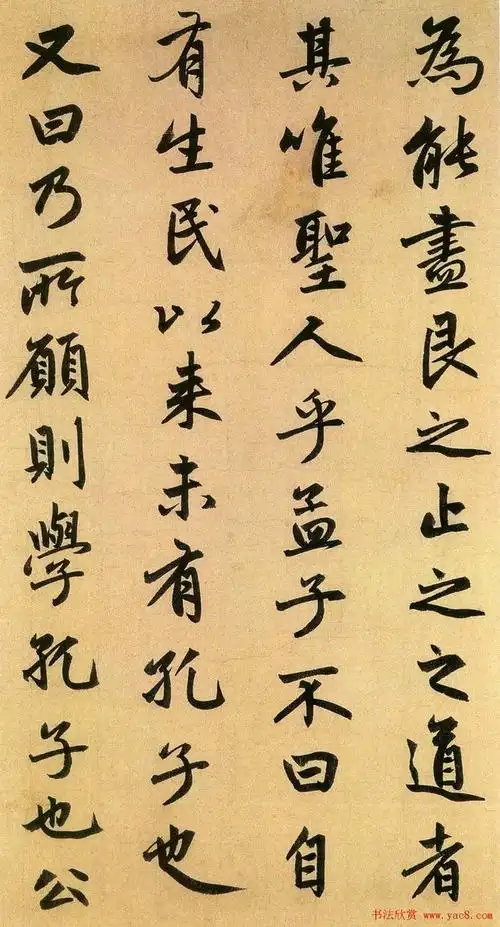 為能盡艮之止之之道者
其唯聖人乎孟子不曰自
有生民以来未有孔子也
又曰乃所願則學孔子也公
书法欣赏 www.yac8.com